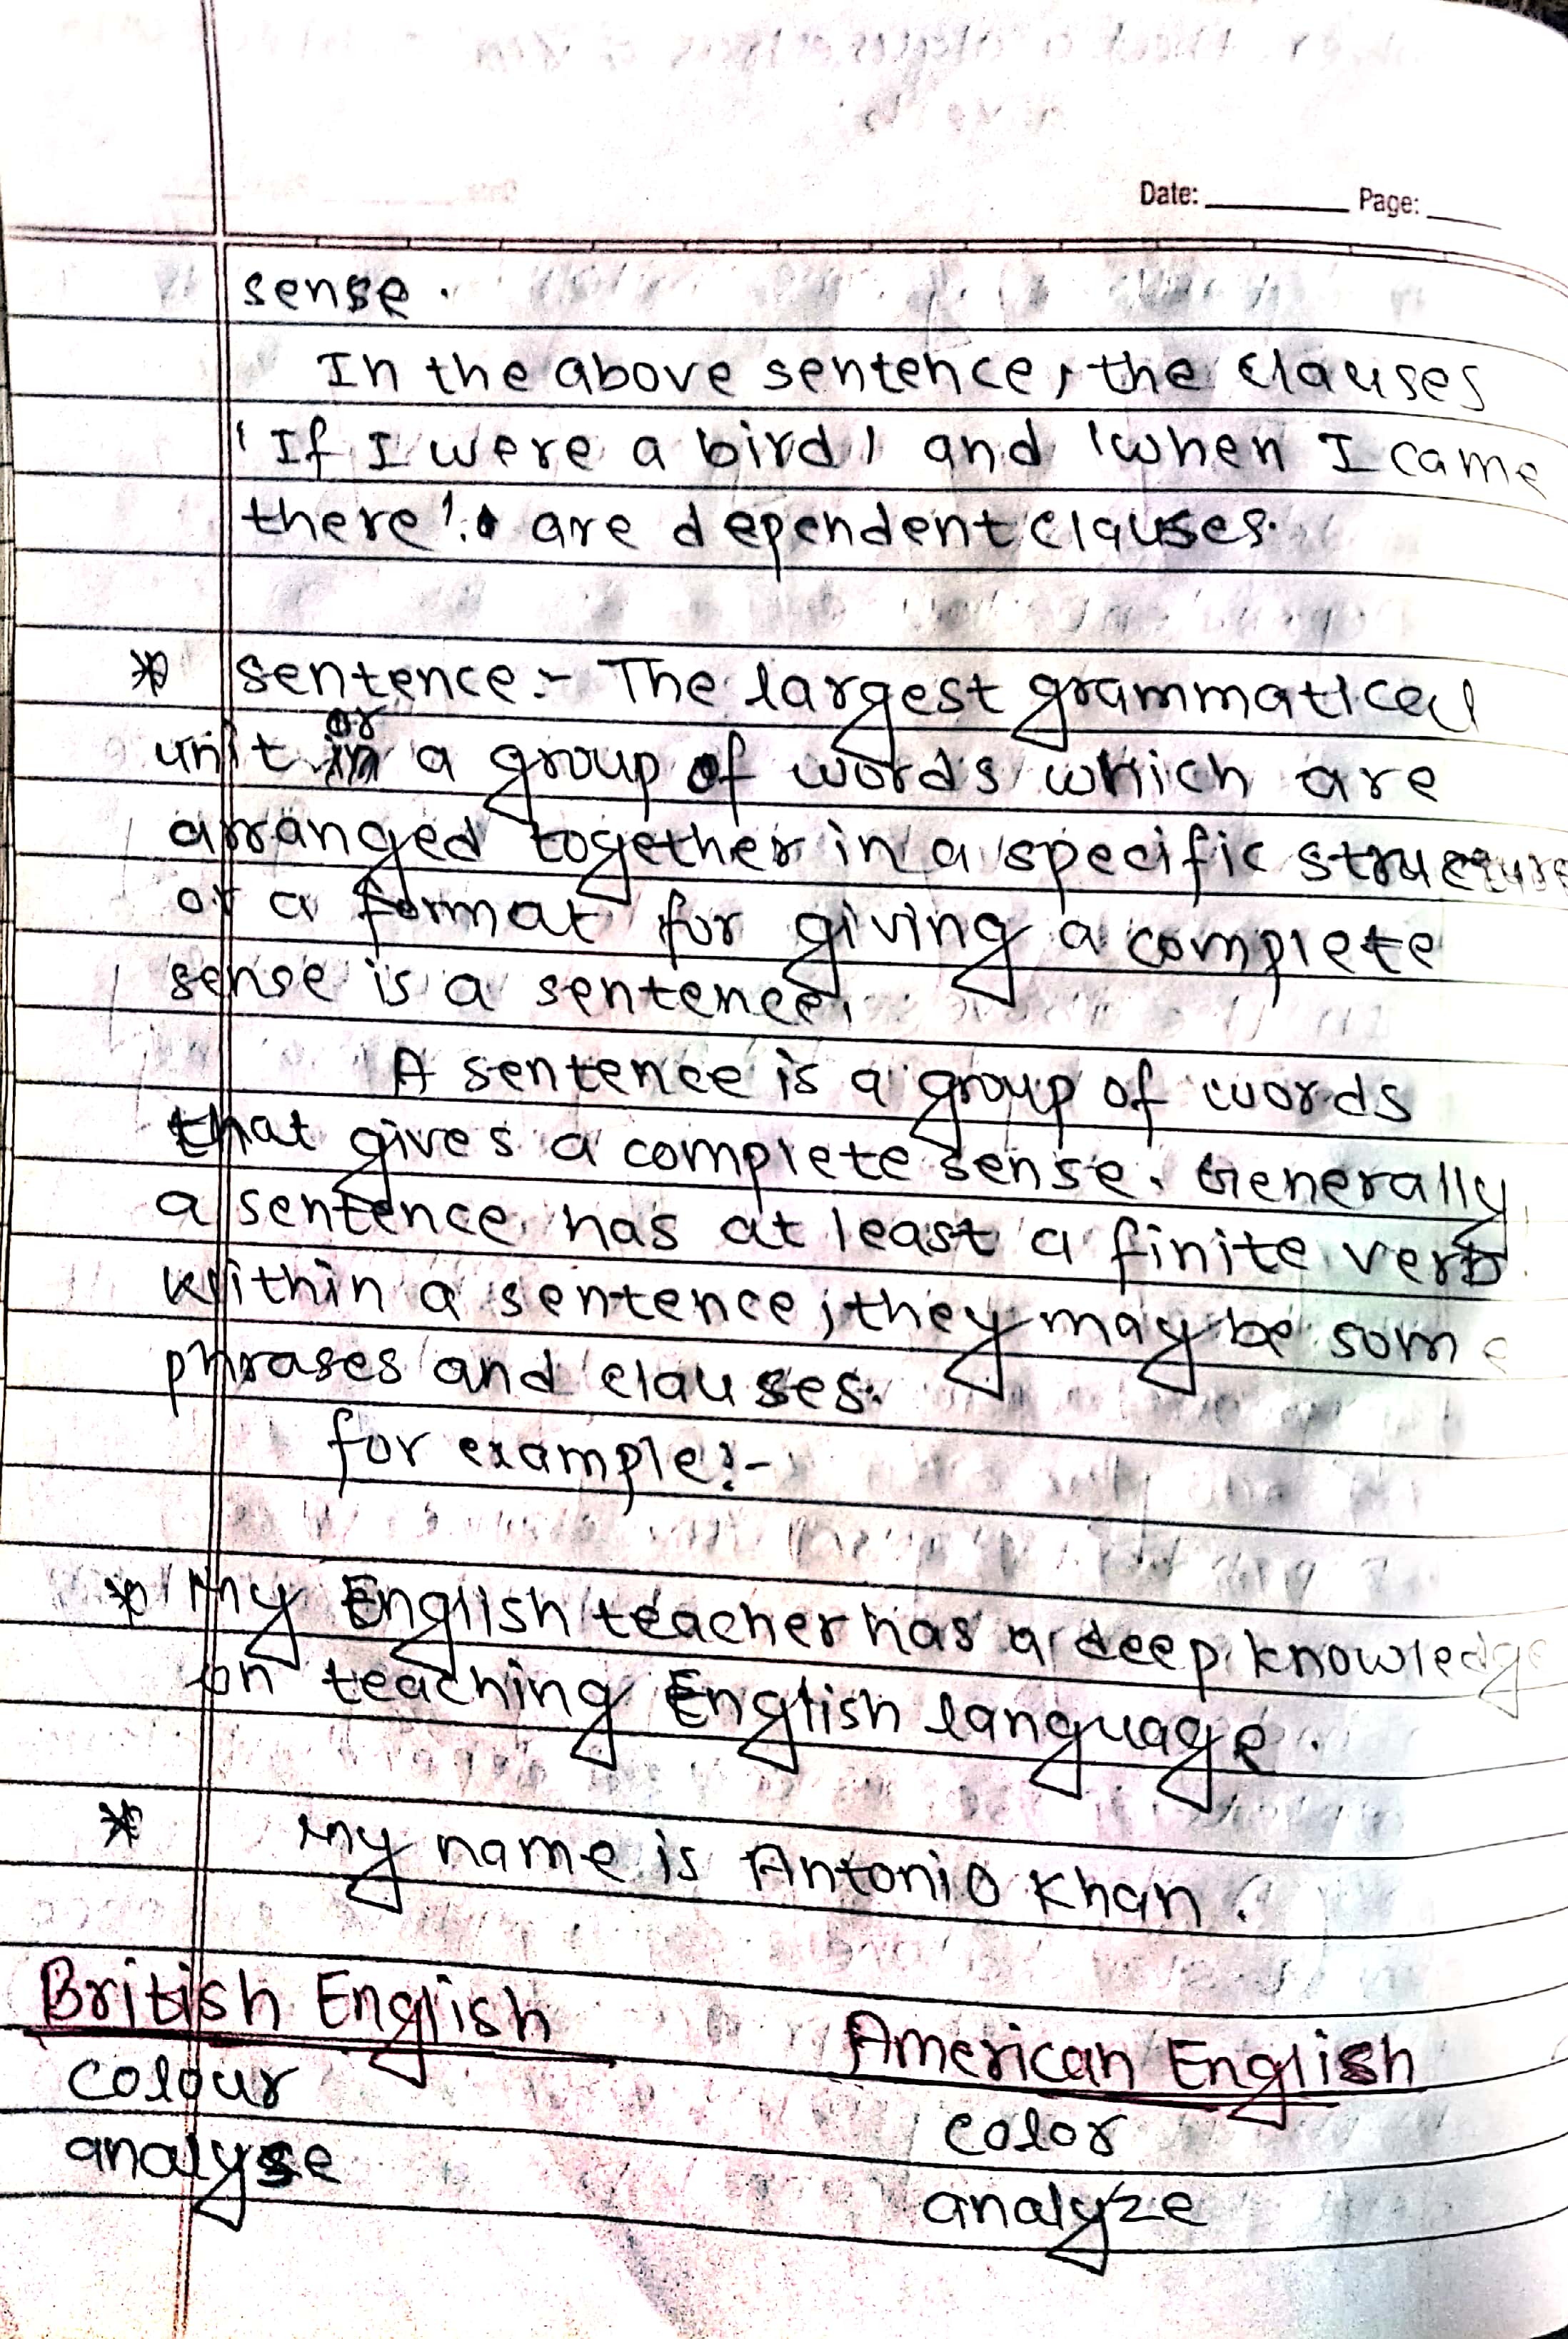 Date: Page:
sense.
In the above sentence, the clauses
'If I were a bird' and 'when I came
there' are dependent clauses.
* sentence:- The largest grammatical
unit or a group of words which are
arranged together in a specific structure
or a format for giving a complete
sense is a sentence.
A sentence is a group of words
that gives a complete sense. Generally,
a sentence has at least a finite verb.
within a sentence, they may be some
phrases and clauses.
for example:-
* My English teacher has a deep knowledge
on teaching English language.
* my name is Antonio Khan.
British English American English
colour color
analyse analyze